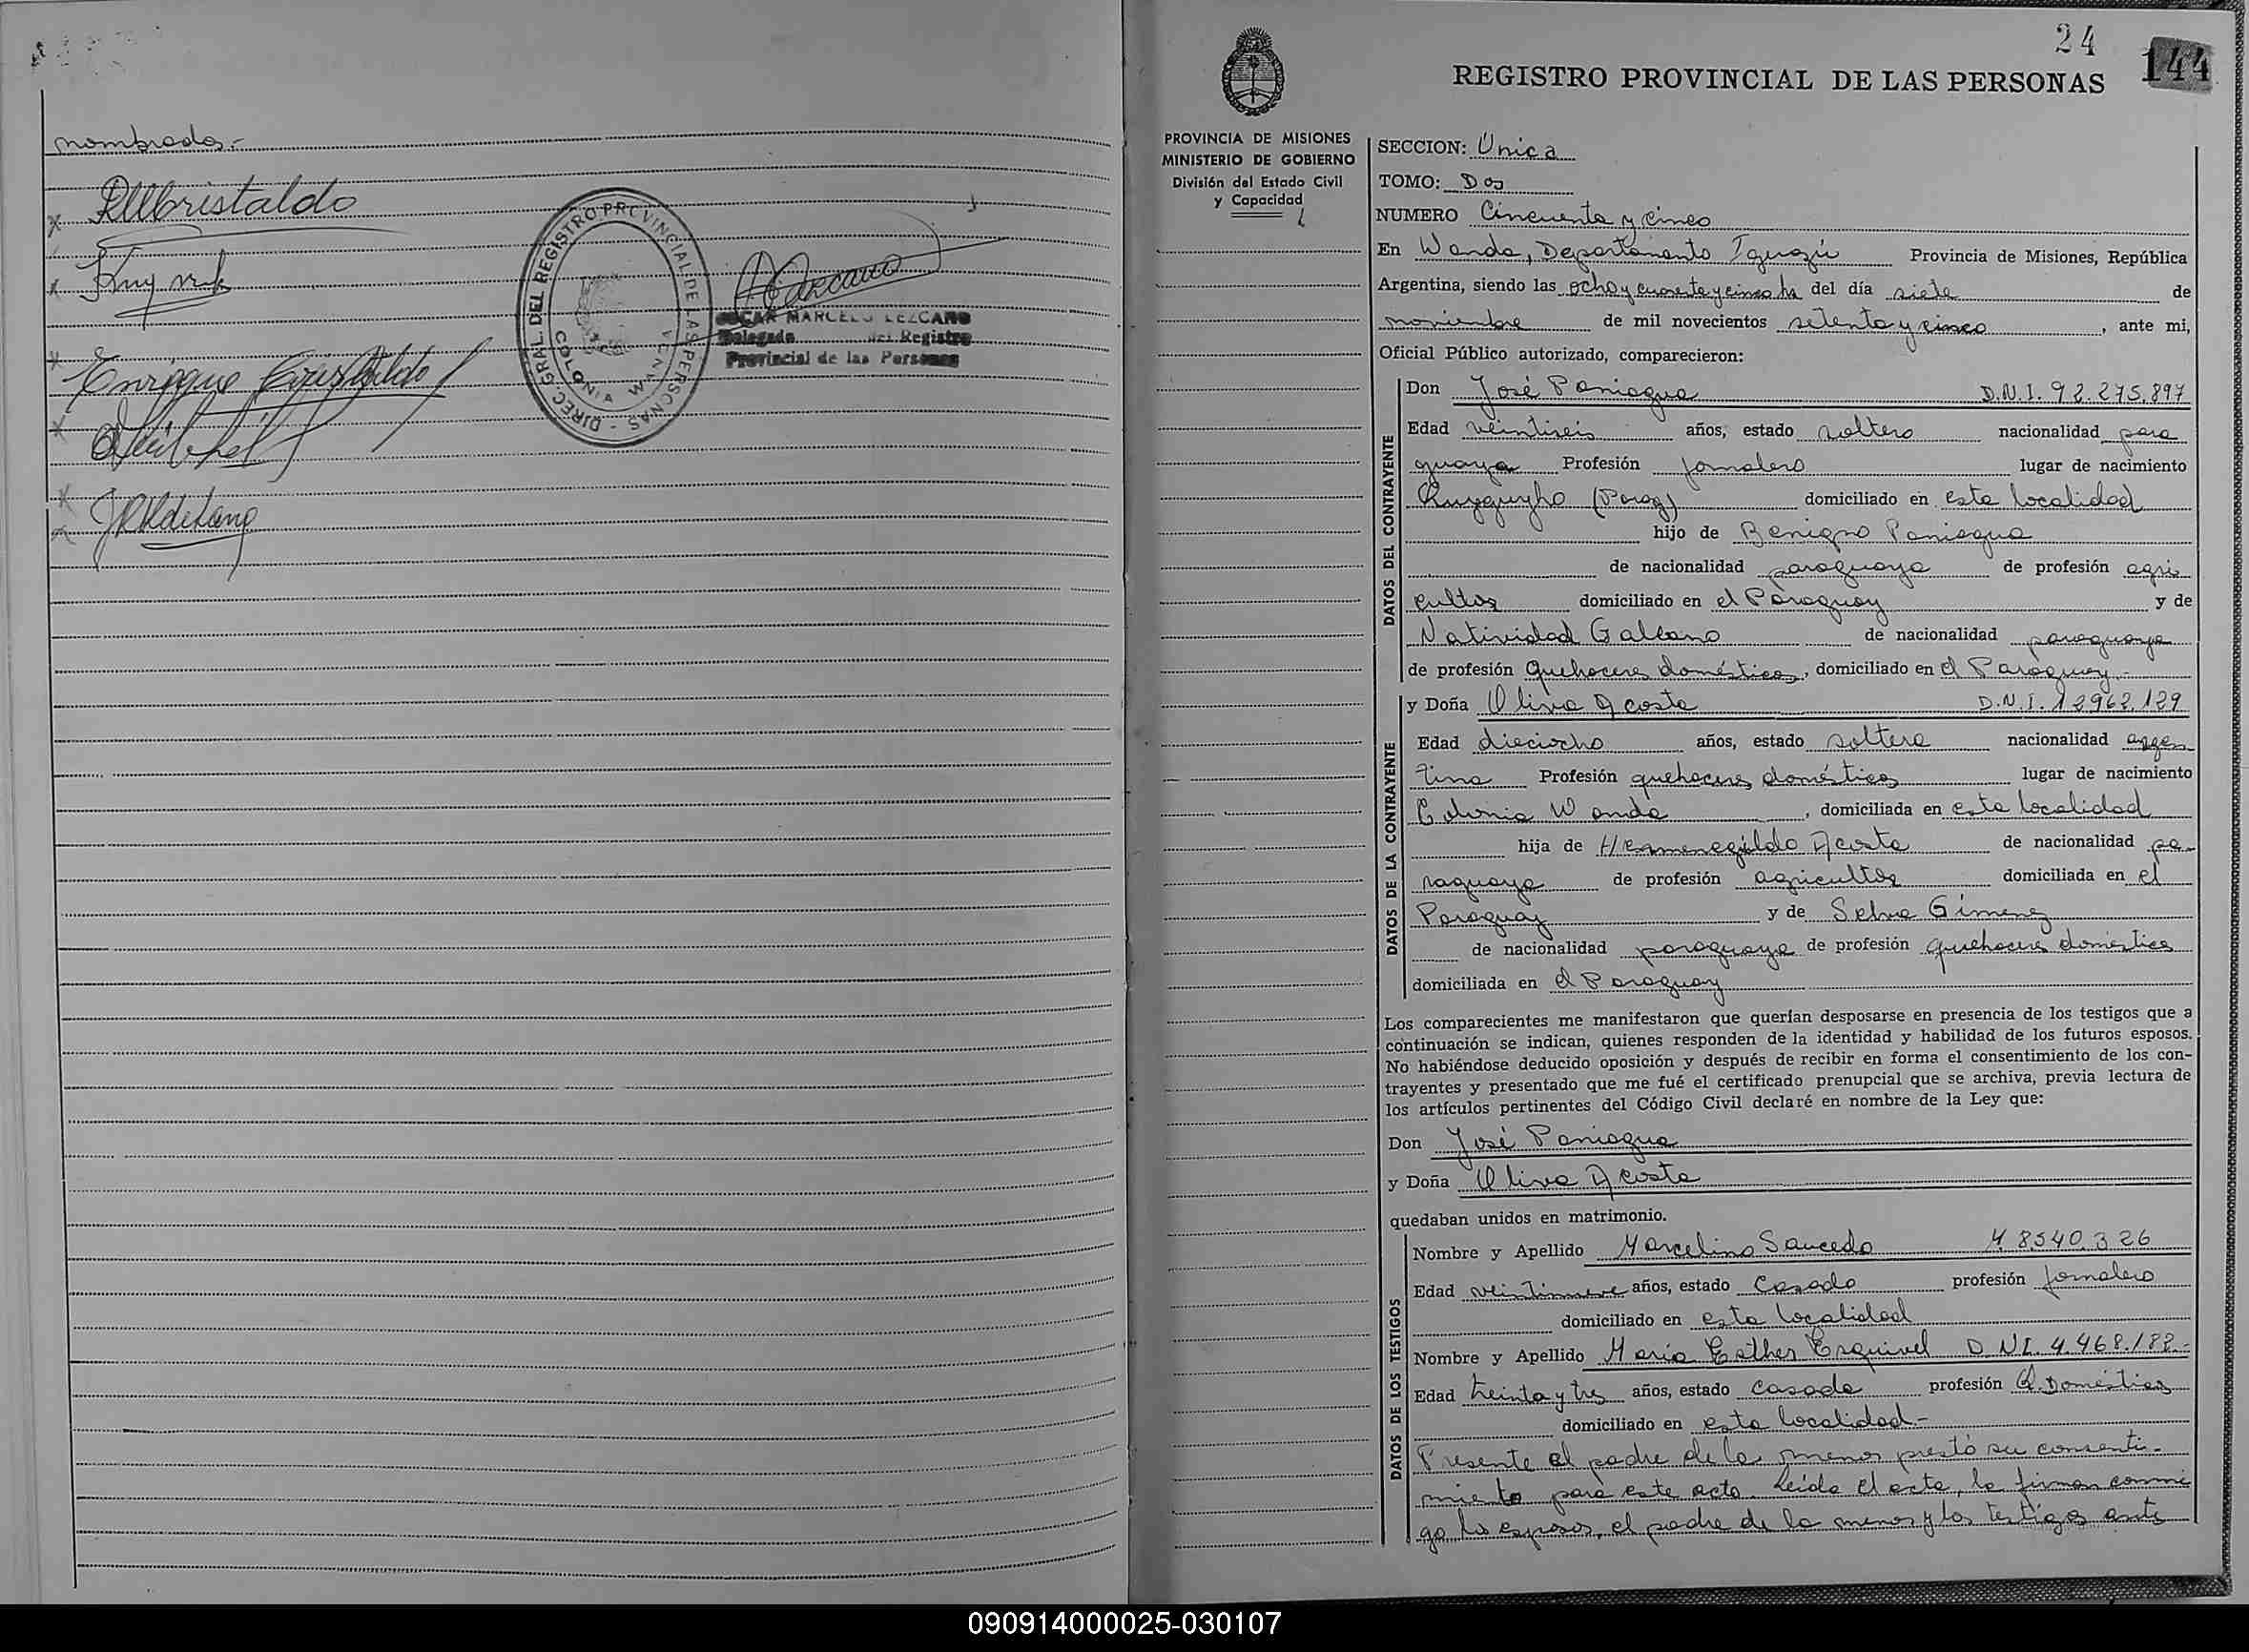 nombrados.-
Enrique Cristaldo
DIREC. GRAL DEL REGISTRO PROVINCIAL DE LAS PERSONAS
COLONIA WANDA
OSCAR MARCELO LEZCANO
Delegado del Registro
Provincial de las Personas
24
144
REGISTRO PROVINCIAL DE LAS PERSONAS
PROVINCIA DE MISIONES
MINISTERIO DE GOBIERNO
División del Estado Civil
y Capacidad
SECCION: Unica
TOMO: Dos
NUMERO Cincuenta y cinco
En Wanda, Departamento Iguazú Provincia de Misiones, República
Argentina, siendo las ocho y cuarenta y cinco hs del día siete de
noviembre de mil novecientos setenta y cinco, ante mi,
Oficial Público autorizado, comparecieron:
DATOS DEL CONTRAYENTE
Don José Paniagua D.N.I. 92.275.897
Edad veintiseis años, estado soltero nacionalidad para
guaya Profesión jornalero lugar de nacimiento
(Parag) domiciliado en esta localidad
hijo de Benigno Paniagua
de nacionalidad paraguaya de profesión agri
cultor domiciliado en el Paraguay y de
Natividad Galeano de nacionalidad paraguaya
de profesión quehaceres domésticos, domiciliado en el Paraguay.-
DATOS DE LA CONTRAYENTE
y Doña Oliva Acosta D.N.I. 12962.129
Edad dieciocho años, estado soltera nacionalidad argen
tina Profesión quehaceres domésticos lugar de nacimiento
Colonia Wanda, domiciliada en esta localidad
hija de Hermenegildo Acosta de nacionalidad pa-
raguaya de profesión agricultor domiciliada en el
Paraguay y de Selva Gimenez
de nacionalidad paraguaya de profesión quehaceres domésticos
domiciliada en el Paraguay
Los comparecientes me manifestaron que querían desposarse en presencia de los testigos que a
continuación se indican, quienes responden de la identidad y habilidad de los futuros esposos.
No habiéndose deducido oposición y después de recibir en forma el consentimiento de los con-
trayentes y presentado que me fué el certificado prenupcial que se archiva, previa lectura de
los artículos pertinentes del Código Civil declaré en nombre de la Ley que:
Don José Paniagua
y Doña Oliva Acosta
quedaban unidos en matrimonio.
DATOS DE LOS TESTIGOS
Nombre y Apellido Marcelino Saucedo M. 8.540.326
Edad veintinueve años, estado casado profesión jornalero
domiciliado en esta localidad
Nombre y Apellido Maria Esther Esquivel D.N.I. 4.468.182.-
Edad treinta y tres años, estado casada profesión Q. Domésticos
domiciliado en esta localidad-
Presente el padre de la menor prestó su consenti-
miento para este acto. Leída el acta, la firman conmi
go los esposos, el padre de la menor y los testigos ante
090914000025-030107